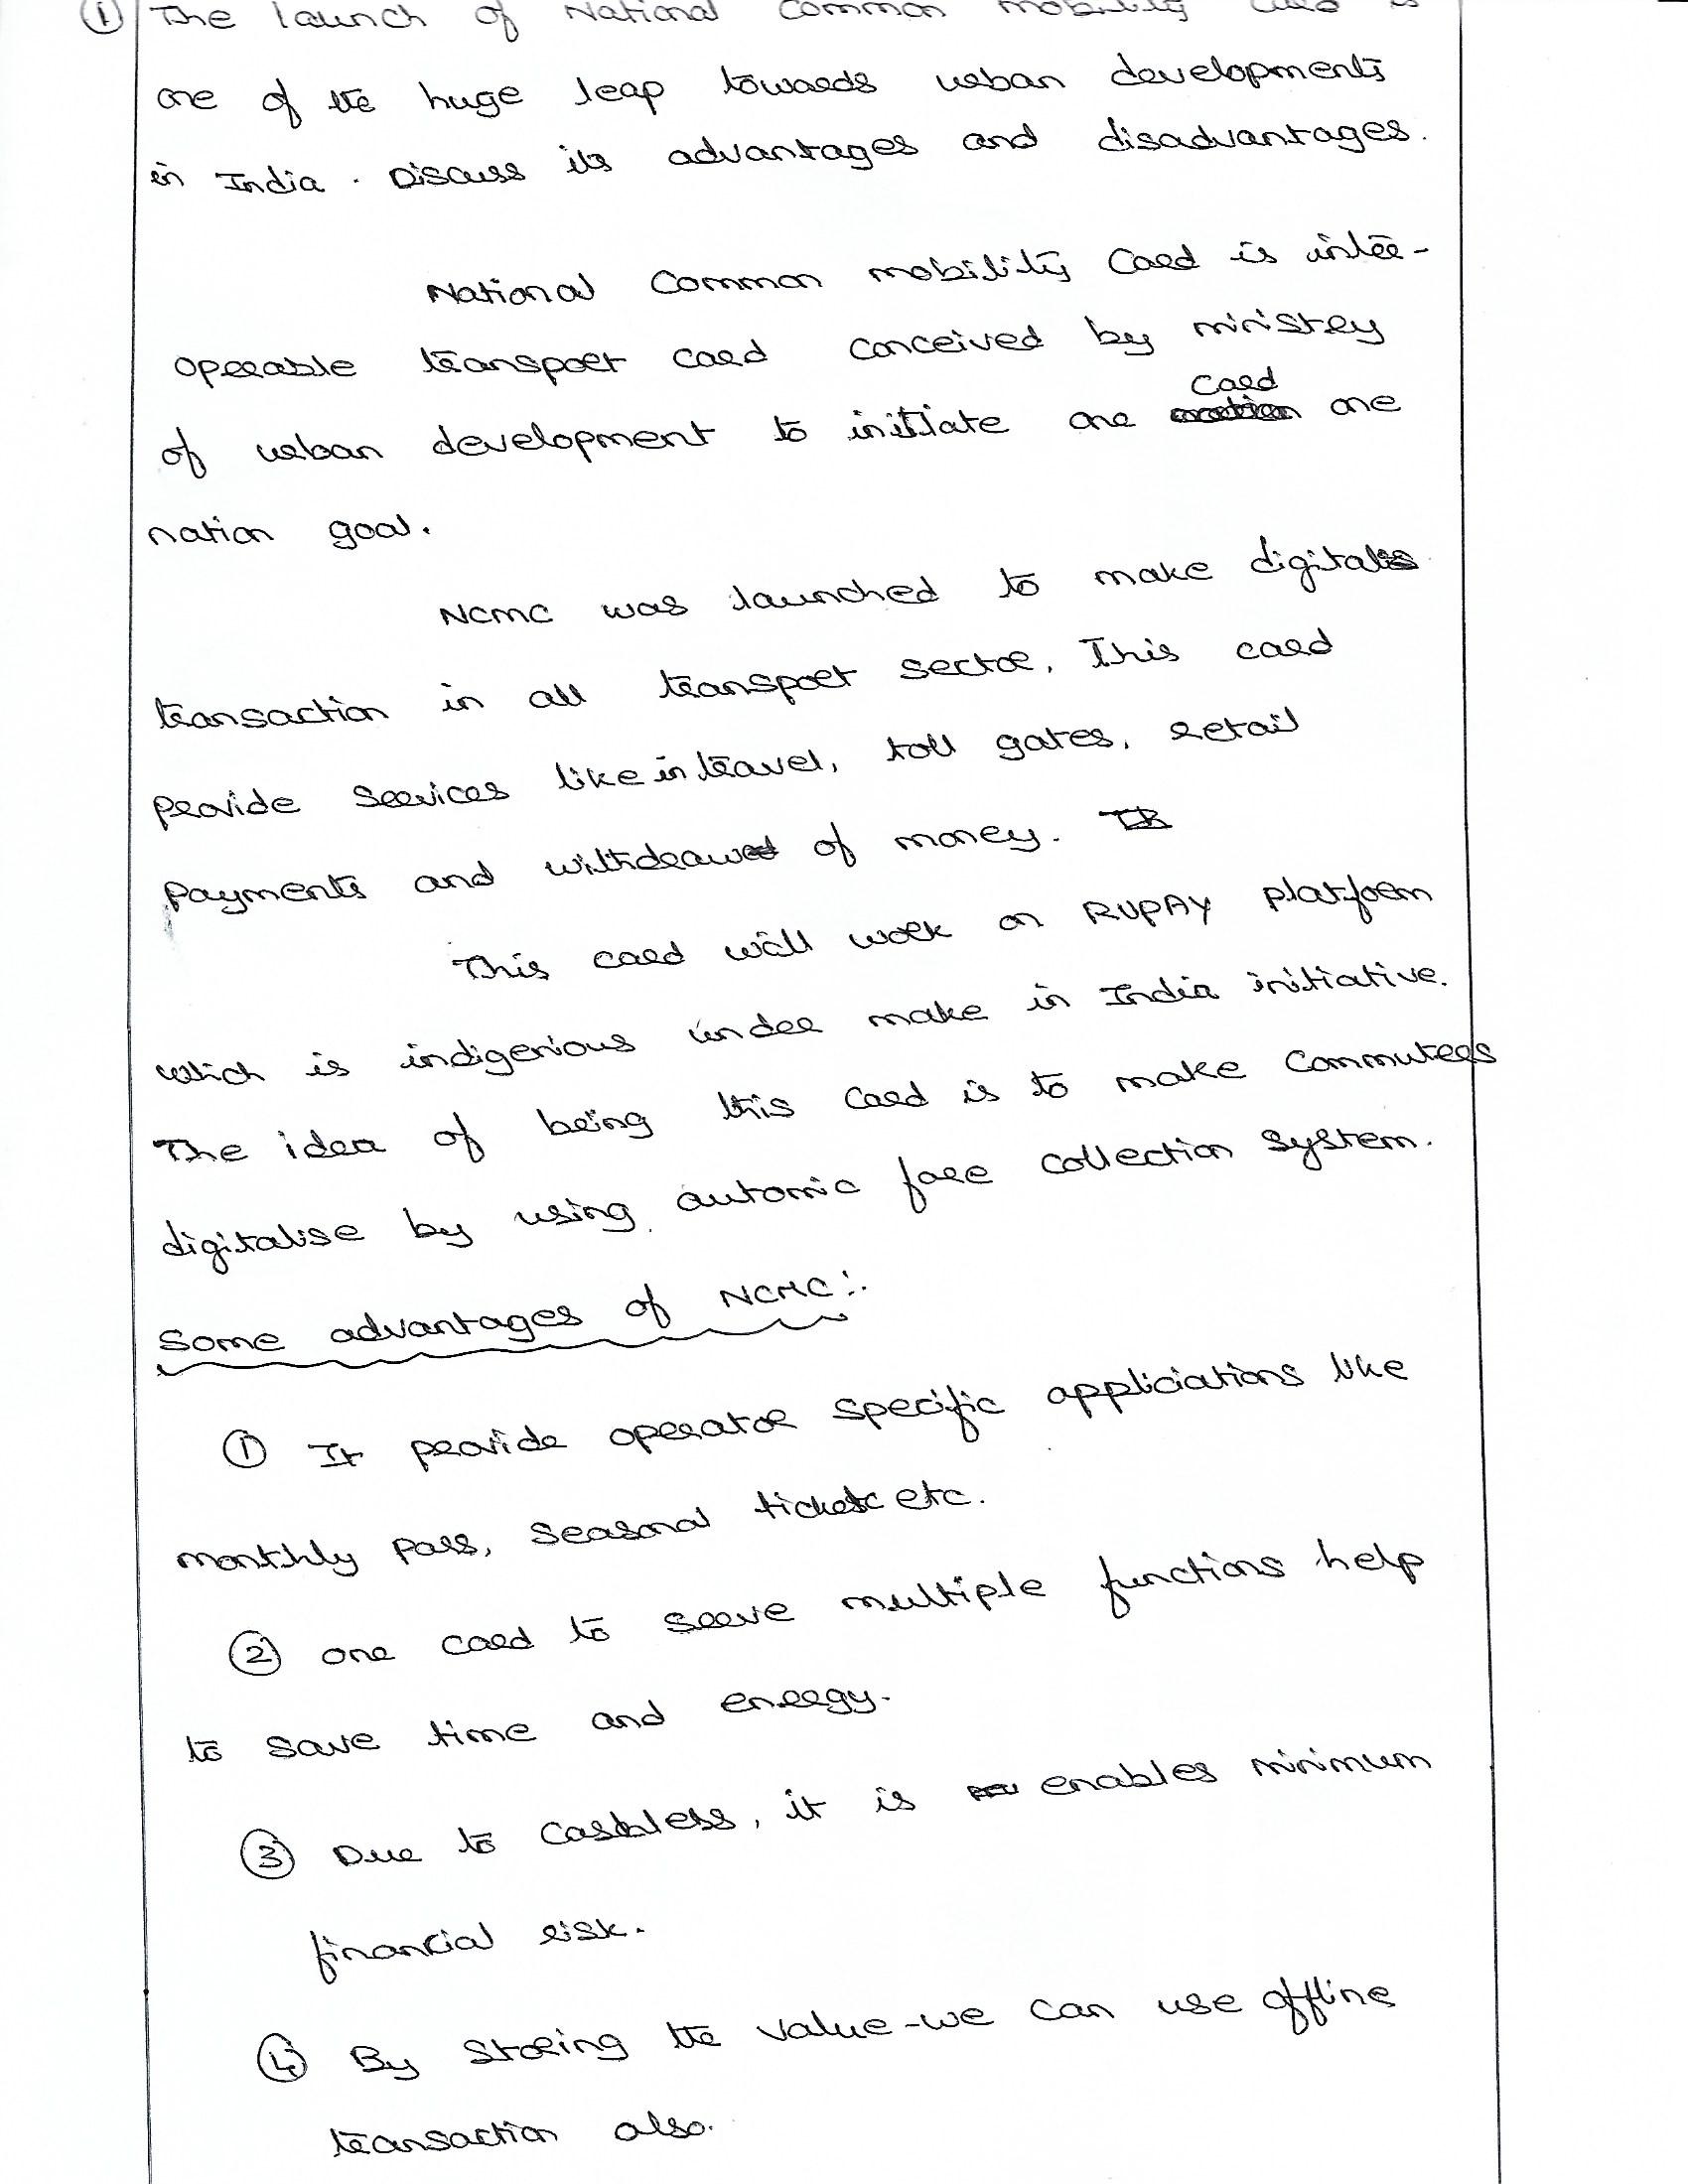 ① The launch of National Common mobility Card is
one of the huge leap towards urban developments
in India. Discuss its advantages and disadvantages.
National Common mobility Card is inter-
operable transport card conceived by ministry
of urban development to initiate one card one
nation goal.
NCMC was launched to make digital
transaction in all transport sector, This card
provide services like in travel, toll gates, retail
payments and withdraw of money.
This card will work on RUPAY platform
which is indigenious under make in India initiative.
The idea of being this card is to make commuters
digitalise by using automic fare collection system.
Some advantages of NCMC:.
① It provide operator specific appliciations like
monthly pass, seasonal tickets etc.
② one card to serve multiple functions help
to save time and energy.
③ Due to cashless, it is enables minimum
financial risk.
④ By storing the value-we can use offline
transaction also.